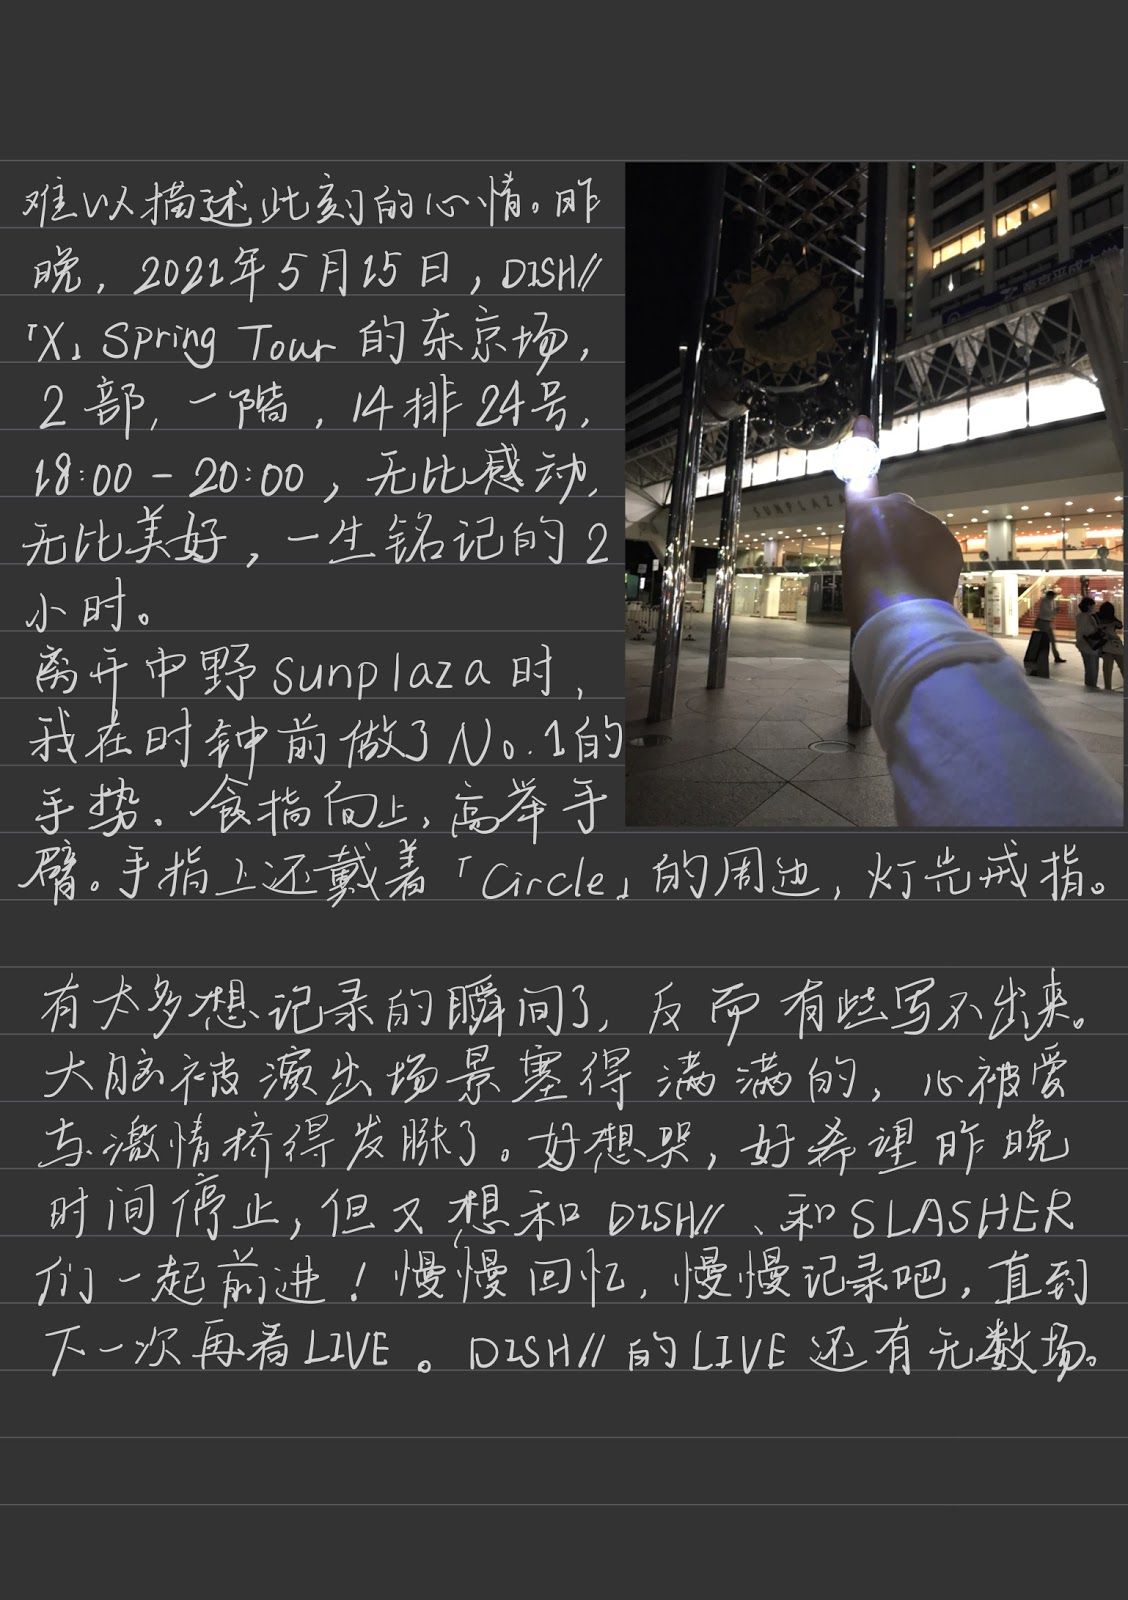 难以描述此刻的心情。昨
晚，2021年5月15日，DISH//
「X」Spring Tour 的东京场，
2部，一階，14排24号，
18:00-20:00，无比感动，
无比美好，一生铭记的2
小时。
离开中野sunplaza时，
我在时钟前做了No.1的
手势．食指向上，高举手
臂。手指上还戴着「Circle」的周边，灯光戒指。
SUNPLAZA
有太多想记录的瞬间了，反而有些写不出来。
大脑被演出场景塞得满满的，心被爱
与激情挤得发胀了。好想哭，好希望昨晚
时间停止，但又想和DISH//、和SLASHER
们一起前进！慢慢回忆，慢慢记录吧，直到
下一次再看LIVE。DISH//的LIVE还有无数场。